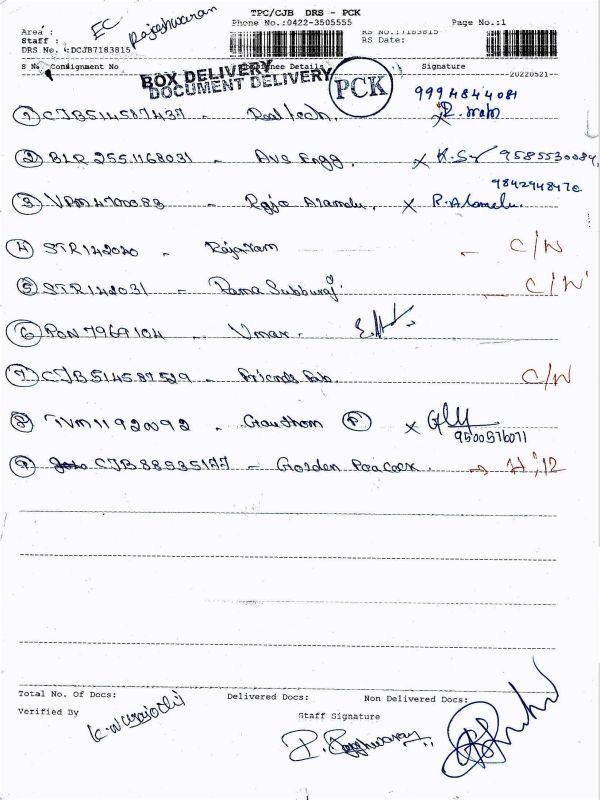 TPC/CJB DRS - PCK
Phone No.:0422-3505555
Page No.:1
Area :
EC
Rajeshwaran
Staff :
DRS No. :DCJB7183815
RS Date:
S No Consignment No Consignee Details Signature
20220521-
BOX DELIVERY
DOCUMENT DELIVERY
PCK
9994844081
1 CJB514587437 - Realtech.
2 BLR 2551168031 - Ave Engg. x K.S 9585530084
9842948470
3 VPM4700083 - Raja Alamelu. x R. Alamelu.
4 STR142020 - Rajaram - C/N
5 STR142031 - Rama Subburaj - C/N
6 PON 7969104 - Vmax.
7 CJB514587529 - Friends Fab. C/N
8 TVM1192092 - Gautham P x
9500576071
9 CJB88535177 - Golden Peacock. → H/12
Total No. Of Docs: Delivered Docs: Non Delivered Docs:
Verified By Staff Signature